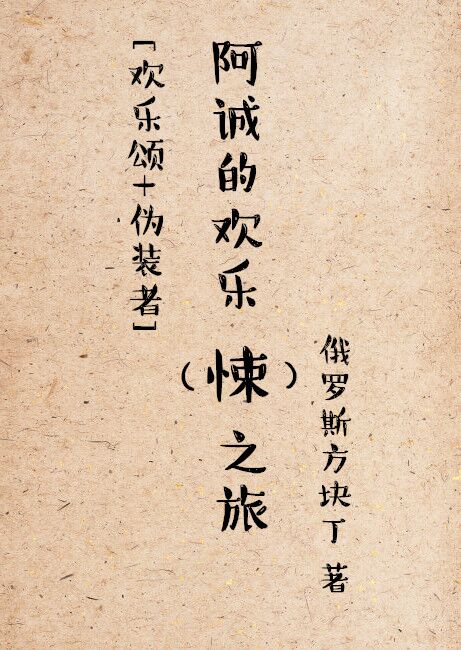 [欢乐颂+伪装者]
阿诚的欢乐(悚)之旅
俄罗斯方块丁 著